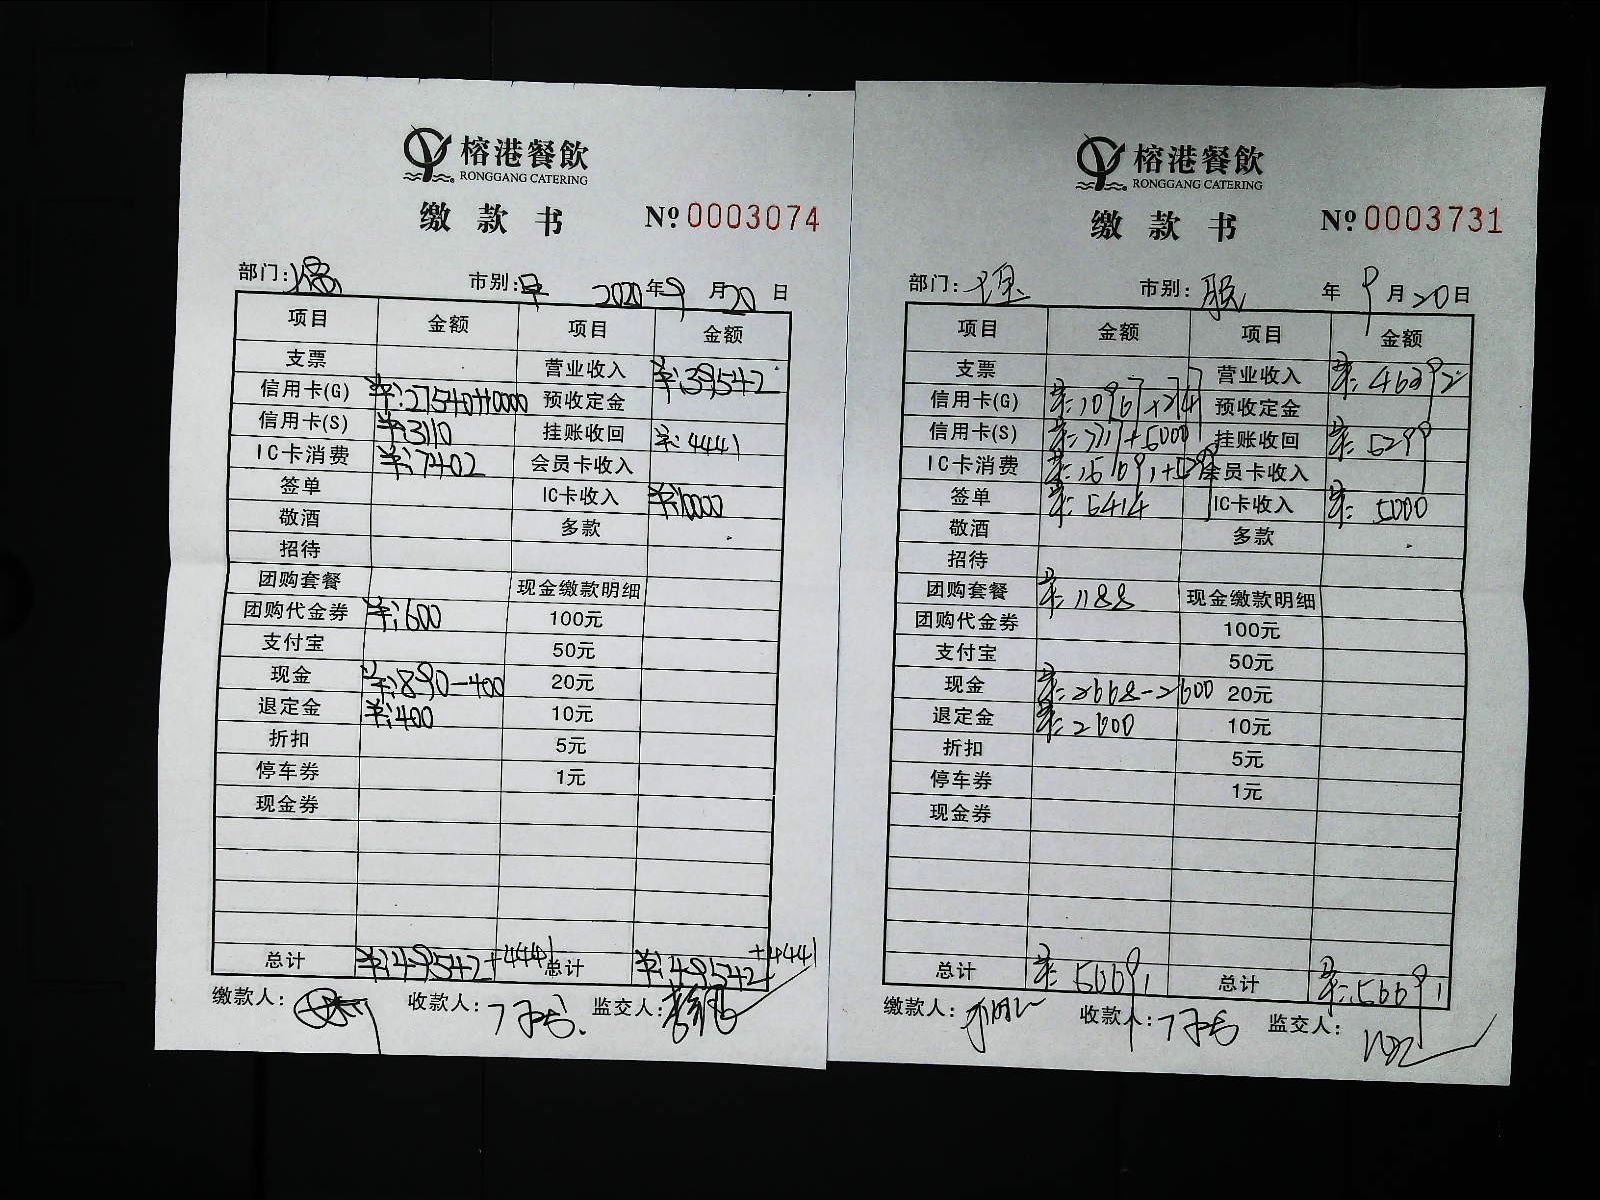 榕港餐飲
RONGGANG CATERING
缴款书 № 0003074
部门: 市别:早 2020年9月20日
项目 金额 项目 金额
支票 营业收入 ¥:39542
信用卡(G) ¥:27540+10000 预收定金
信用卡(S) ¥:3110 挂账收回 ¥:4441
IC卡消费 ¥:7402 会员卡收入
签单 IC卡收入 ¥:10000
敬酒 多款
招待
团购套餐 现金缴款明细
团购代金券 ¥:600 100元
支付宝 50元
现金 ¥:890-400 20元
退定金 ¥:400 10元
折扣 5元
停车券 1元
现金券
总计 ¥:49542+4441 总计 ¥:49542+4441
缴款人: 收款人: 监交人:
榕港餐飲
RONGGANG CATERING
缴款书 № 0003731
部门: 市别: 年9月20日
项目 金额 项目 金额
支票 营业收入 ¥:46392
信用卡(G) 预收定金
信用卡(S) 挂账收回 ¥:5299
IC卡消费 会员卡收入
签单 ¥:5414 IC卡收入 ¥:5000
敬酒 多款
招待
团购套餐 ¥:1188 现金缴款明细
团购代金券 100元
支付宝 50元
现金 ¥:2668-2600 20元
退定金 ¥:2600 10元
折扣 5元
停车券 1元
现金券
总计 总计 ¥:56691
缴款人: 收款人: 监交人: